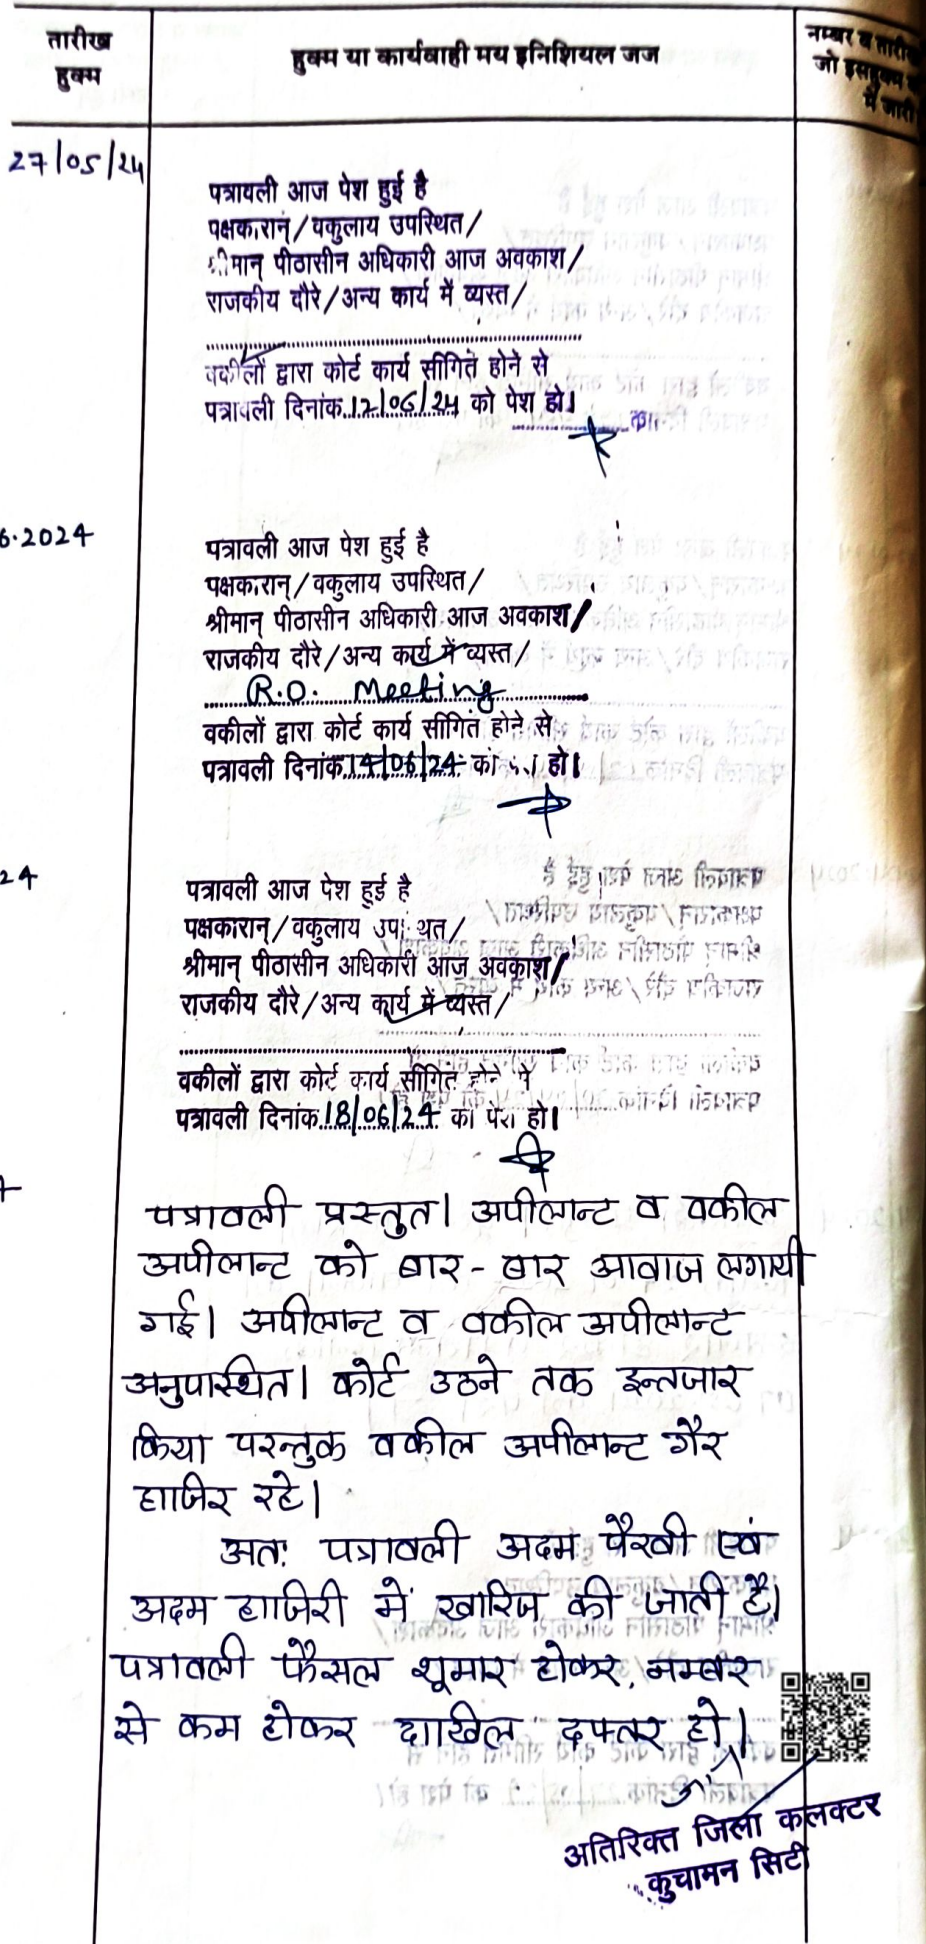 तारीख
हुक्म
हुक्म या कार्यवाही मय इनिशियल जज
नम्बर व तारीख
जो इसहुक्म
में जारी
27/05/24
पत्रावली आज पेश हुई है
पक्षकारान्/वकुलाय उपस्थित/
श्रीमान् पीठासीन अधिकारी आज अवकाश/
राजकीय दौरे/अन्य कार्य में व्यस्त/
वकीलों द्वारा कोर्ट कार्य सीगित होने से
पत्रावली दिनांक 12/06/24 को पेश हो।
6.2024
पत्रावली आज पेश हुई है
पक्षकारान्/वकुलाय उपस्थित/
श्रीमान् पीठासीन अधिकारी आज अवकाश/
राजकीय दौरे/अन्य कार्य में व्यस्त/
R.O. Meeting
वकीलों द्वारा कोर्ट कार्य सीगित होने से
पत्रावली दिनांक 14/06/24 को हो।
24
पत्रावली आज पेश हुई है
पक्षकारान्/वकुलाय उपस्थित/
श्रीमान् पीठासीन अधिकारी आज अवकाश/
राजकीय दौरे/अन्य कार्य में व्यस्त/
वकीलों द्वारा कोर्ट कार्य सीगित होने से
पत्रावली दिनांक 18/06/24 को पेश हो।
पत्रावली प्रस्तुत। अपीलान्ट व वकील
अपीलान्ट को बार - बार आवाज लगायी
गई। अपीलान्ट व वकील अपीलान्ट
अनुपास्थित। कोर्ट उठने तक इन्तजार
किया परन्तुक वकील अपीलान्ट गैर
हाजिर रहे।
अतः पत्रावली अदम पैरवी एवं
अदम हाजिरी में खारिज की जाती है।
पत्रावली फैसल शूमार होकर, नम्बर
से कम होकर दाखिल दफ्तर हो।
अतिरिक्त जिला कलक्टर
कुचामन सिटी